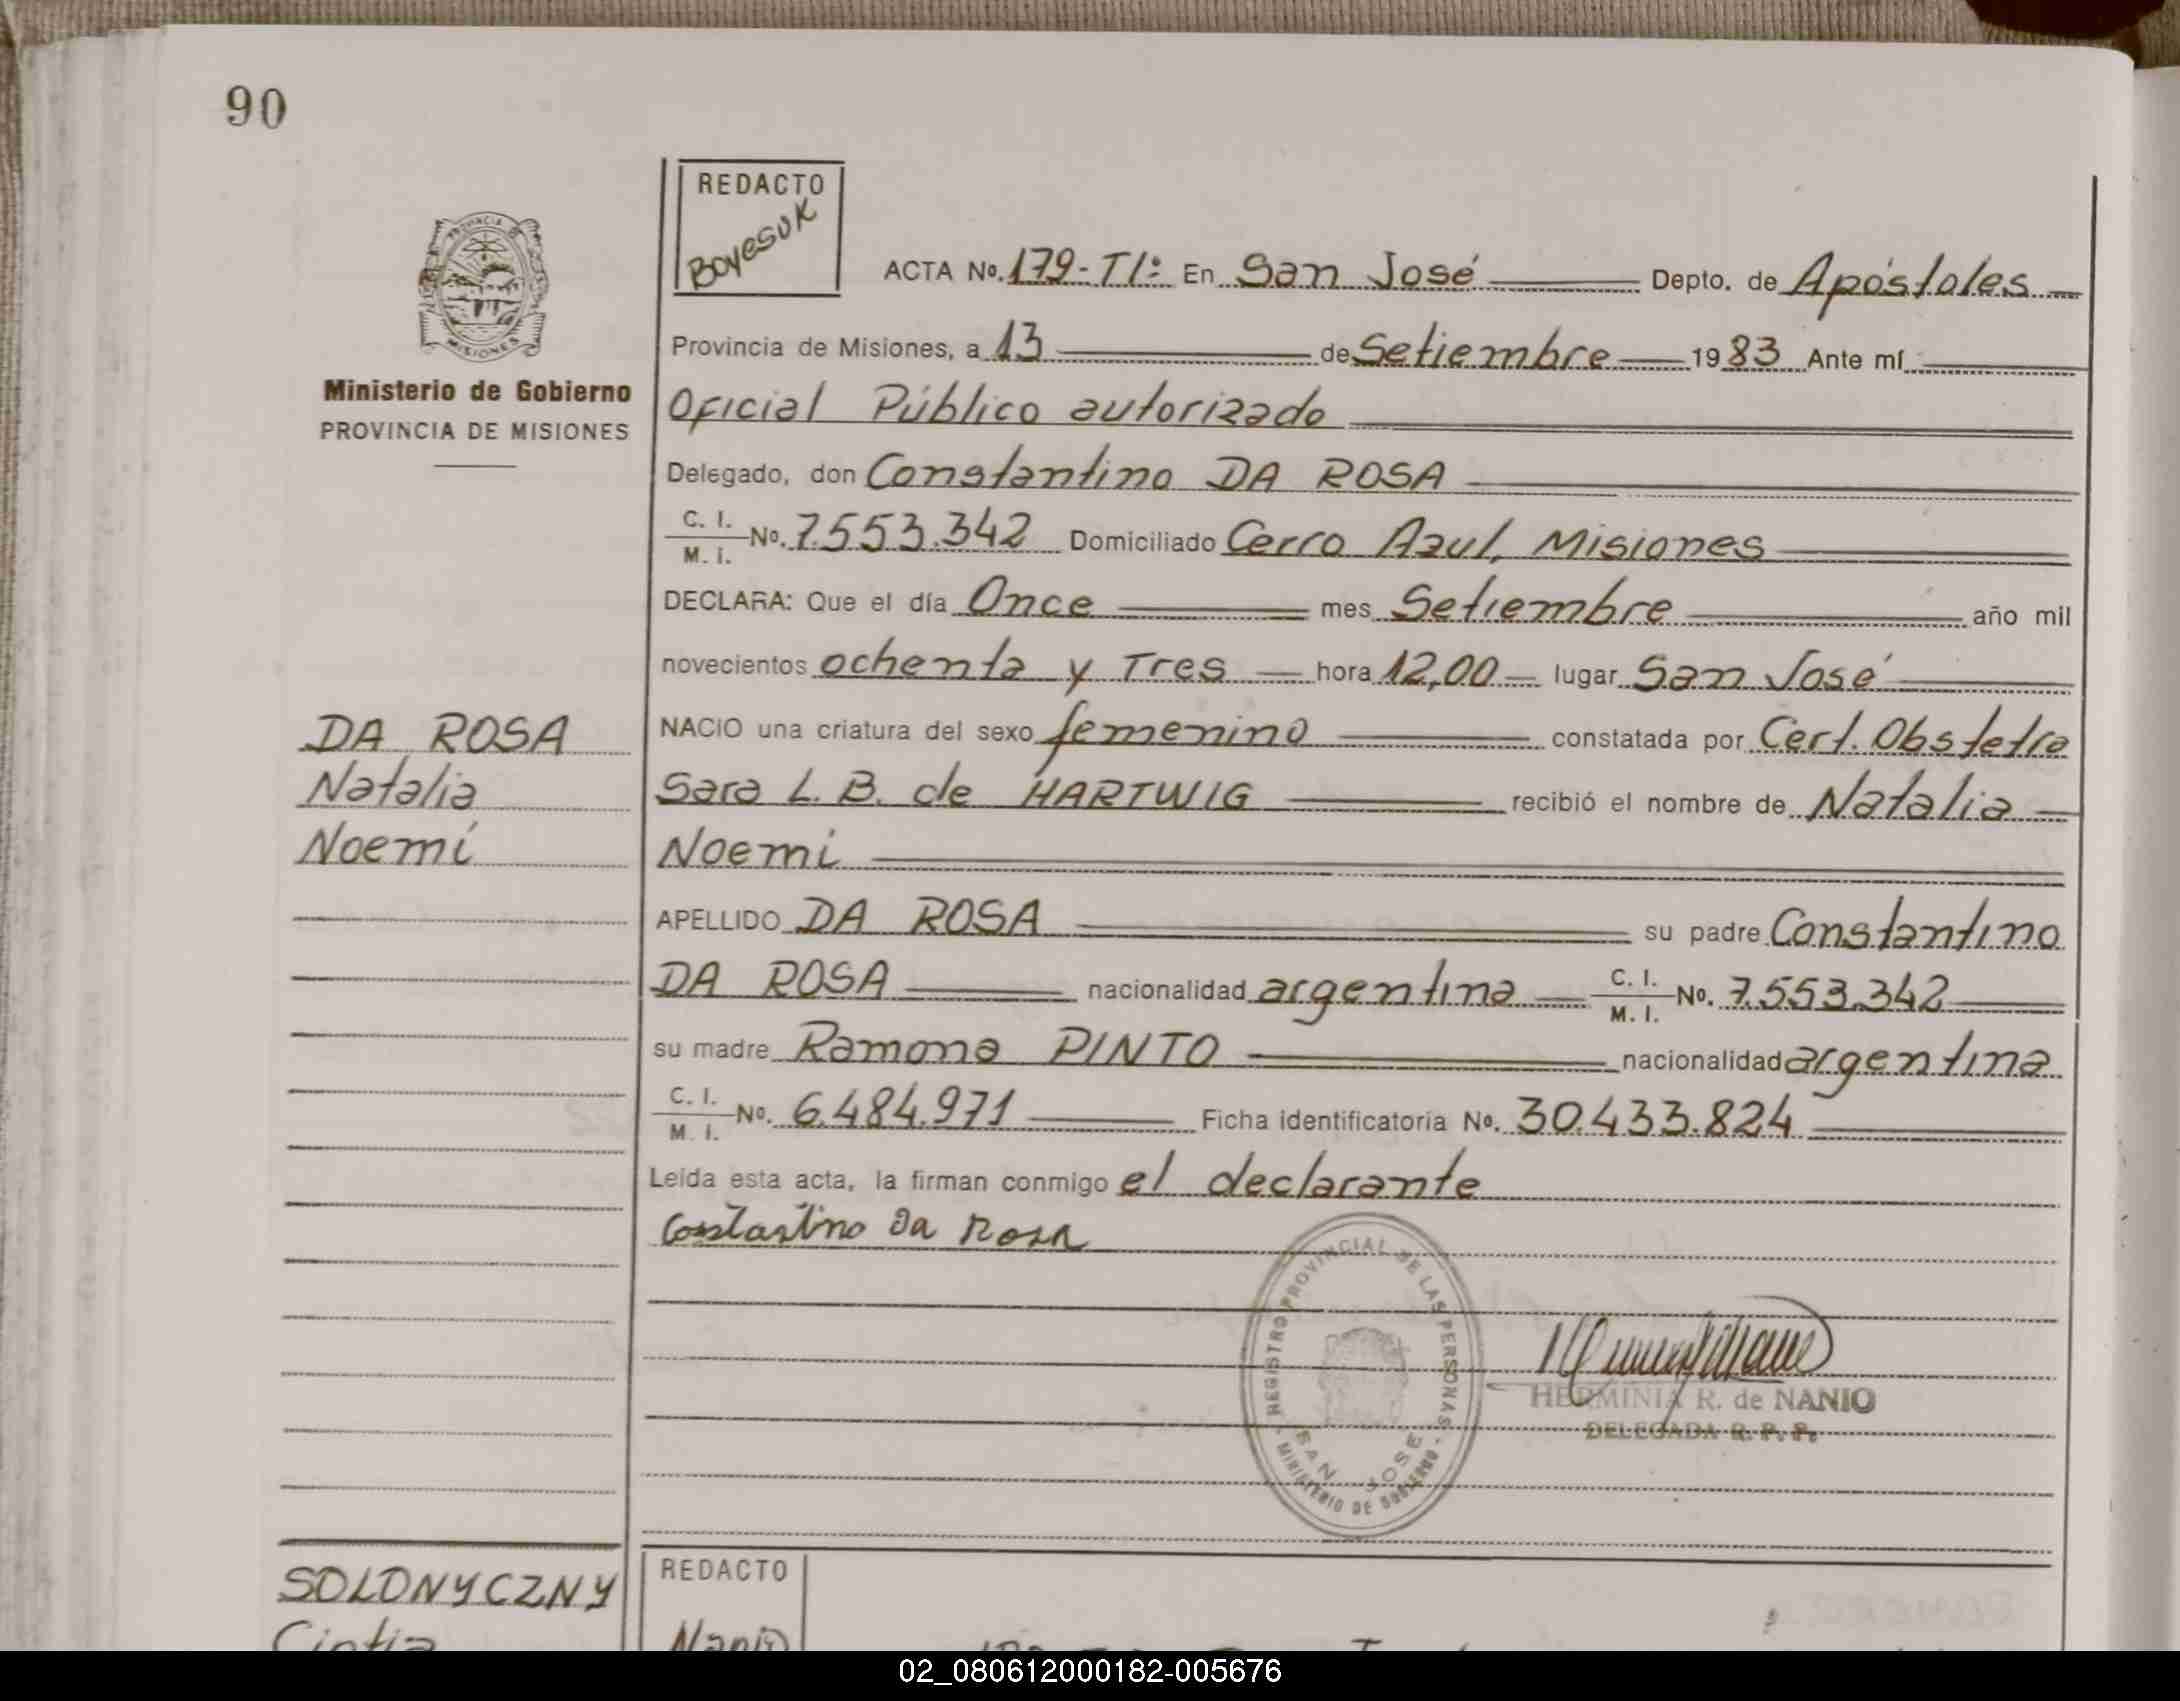 90
REDACTO
Boyesuk
PROVINCIA DE
MISIONES
Ministerio de Gobierno
PROVINCIA DE MISIONES
ACTA No. 179-TI: En San José Depto. de Apóstoles
Provincia de Misiones, a 13 de Setiembre 1983 Ante mí
Oficial Público autorizado
Delegado, don Constantino DA ROSA
C. I. / M. I. No. 7.553.342 Domiciliado Cerro Azul, Misiones
DECLARA: Que el día Once mes Setiembre año mil
novecientos ochenta y Tres hora 12,00 lugar San José
NACIO una criatura del sexo femenino constatada por Cert. Obstetra
Sara L. B. de HARTWIG recibió el nombre de Natalia
Noemi
APELLIDO DA ROSA su padre Constantino
DA ROSA nacionalidad argentina C. I. / M. I. No. 7.553.342
su madre Ramona PINTO nacionalidad argentina
C. I. / M. I. No. 6.484.971 Ficha identificatoria No. 30.433.824
Leída esta acta, la firman conmigo el declarante
Constantino Da Rosa
DA ROSA
Natalia
Noemí
REGISTRO PROVINCIAL DE LAS PERSONAS
SAN JOSE
MINISTERIO DE GOBIERNO
HERMINIA R. de NANIO
DELEGADA R. P. P.
SOLONYCZNY
Cintia
REDACTO
Nanio
02_080612000182-005676